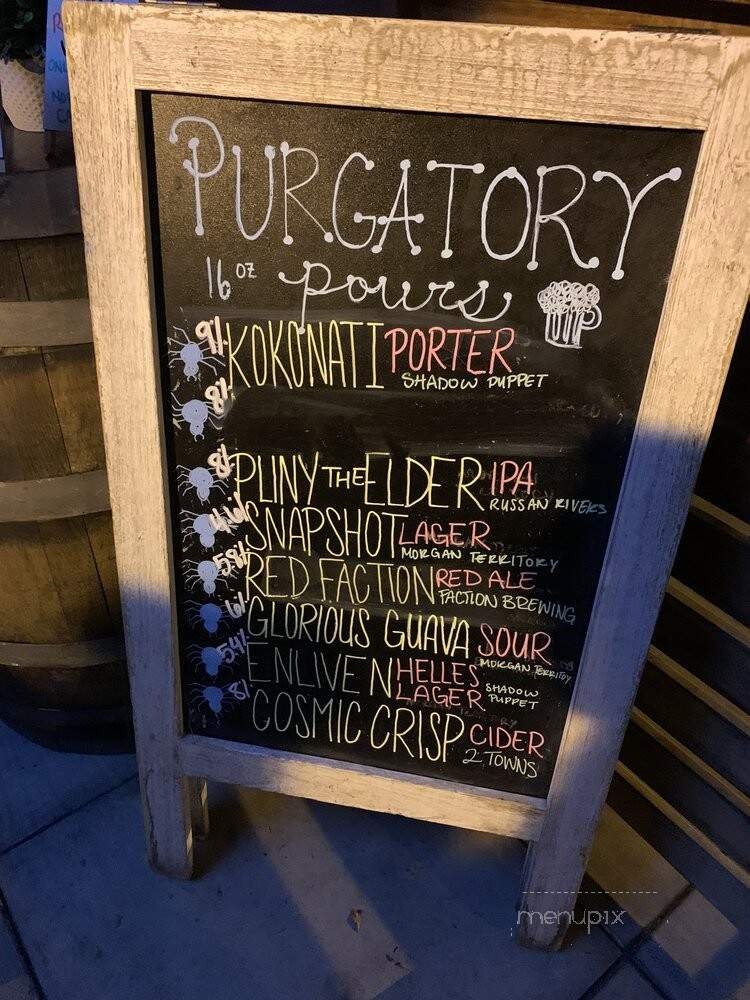 PURGATORY
16 oz pours
9% KOKONATI PORTER
SHADOW PUPPET
8%
8% PLINY THE ELDER IPA
RUSSAN RIVERS
4.6% SNAPSHOT LAGER
MORGAN TERRITORY
5.8% RED FACTION RED ALE
FACTION BREWING
6% GLORIOUS GUAVA SOUR
MORGAN TERRITOY
5.4% ENLIVEN HELLES LAGER
SHADOW PUPPET
8% COSMIC CRISP CIDER
2 TOWNS
menupix